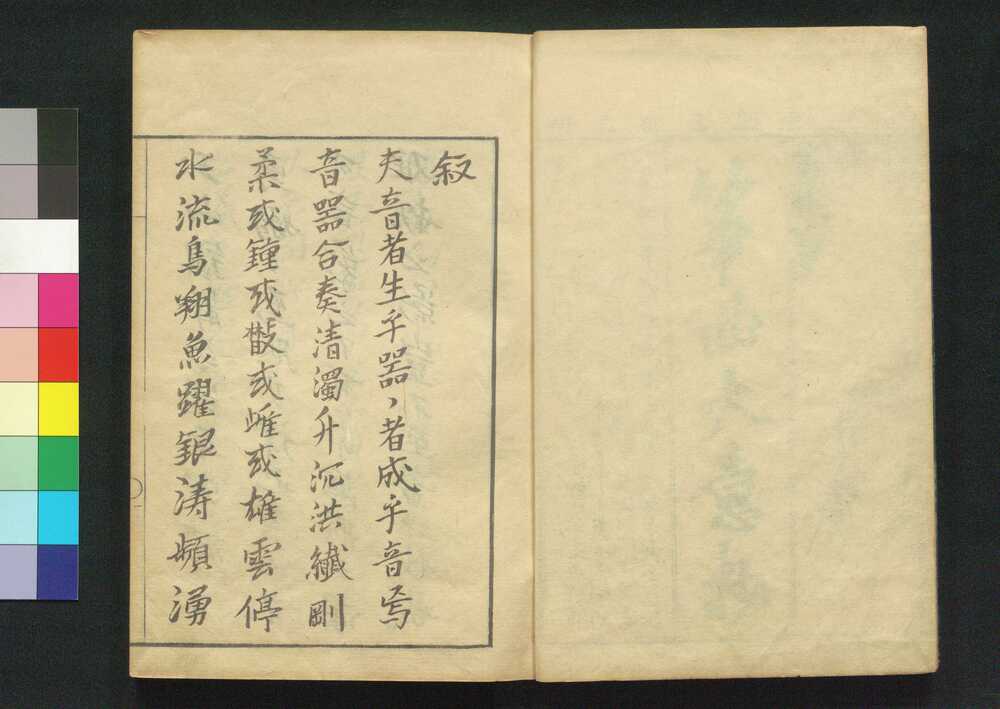 叙
夫音者生乎器〻者成乎音焉
音器合奏清濁升沉洪纎剛
柔或鍾或散或雌或雄雲停
水流鳥翔魚躍銀涛頻湧